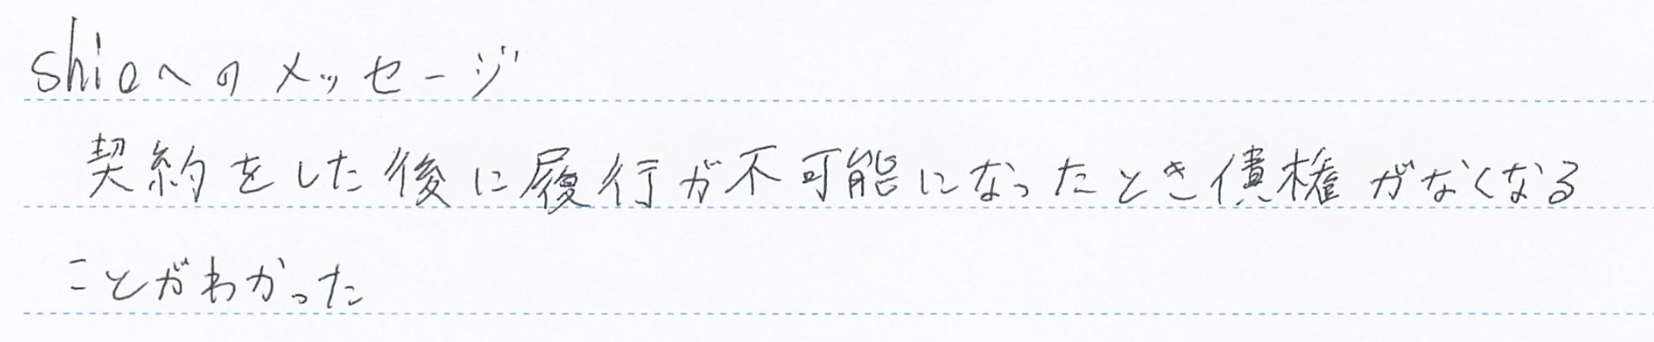 shioへのメッセージ
契約をした後に履行が不可能になったとき債権がなくなる
ことがわかった